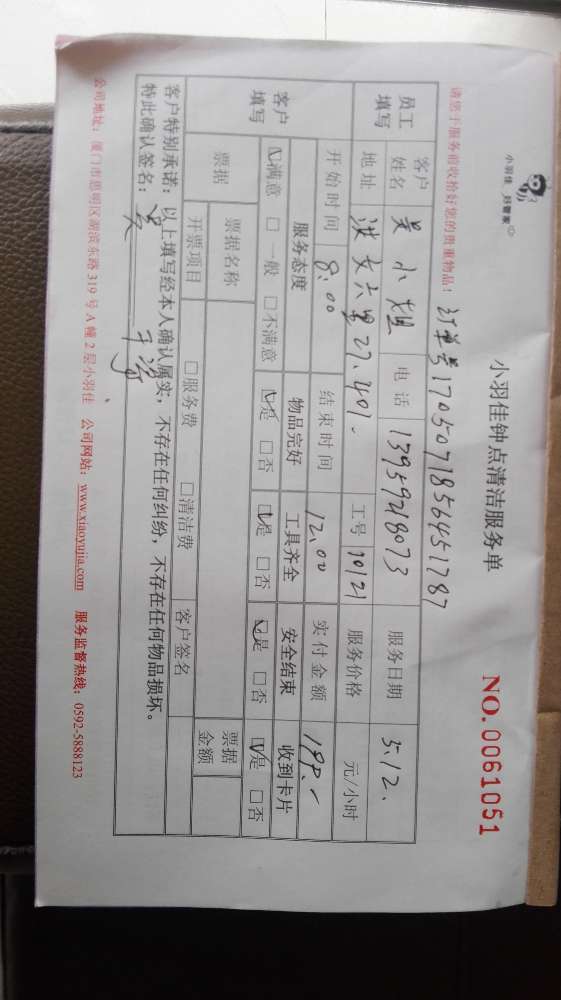 小羽佳 好管家
小羽佳钟点清洁服务单
NO.0061051
请您于服务前收拾好您的贵重物品! 订单号17050718564451787
员工填写 客户姓名 吴小姐 电话 13959218073 服务日期 5.12.
地址 洪文六里27.401. 工号 10121 服务价格 元/小时
客户填写 开始时间 8:00 结束时间 12.00 实付金额
服务态度 物品完好 工具齐全 安全结束 收到卡片
☑满意 □一般 □不满意 ☑是 □否 ☑是 □否 ☑是 □否 ☑是 □否
票据 票据名称 票据金额
开票项目 □服务费 □清洁费 客户签名
客户特别承诺: 以上填写经本人确认属实, 不存在任何纠纷, 不存在任何物品损坏。
特此确认签名: 吴
公司地址: 厦门市思明区湖滨东路319号A幢2层小羽佳 公司网站: www.xiaoyujia.com 服务监督热线: 0592-5888123